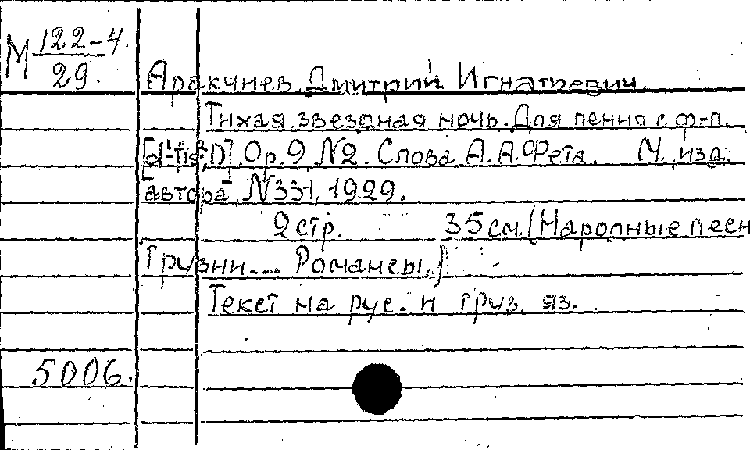 М 122-4.
29.
Аракчиев Дмитрий Игнатьевич
Тихая звездная ночь. Для пения с ф-п.
Ор.9 №2. Слова А.А.Фета. М, изд.
автора №331, 1929.
2 стр. 35 см. (Народные песн
Грузии.... Романсы.)
Текст на рус. и груз. яз.
5006.